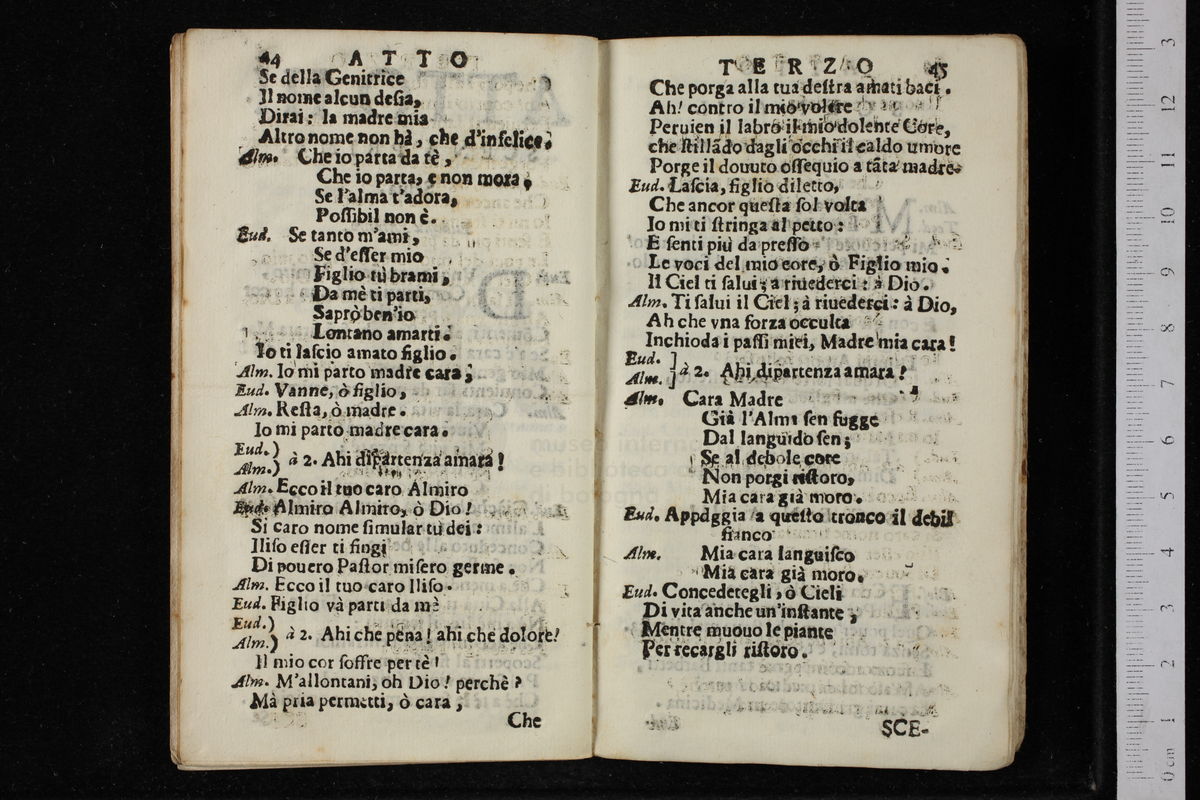 44 ATTO
Se della Genitrice
Il nome alcun desia,
Dirai: la madre mia
Altro nome non hà, che d'infelice.
Alm. Che io parta da tè,
Che io parta, e non mora,
Se l'alma t'adora,
Possibil non è.
Eud. Se tanto m'ami,
Se d'esser mio
Figlio tù brami,
Da mè ti parti,
Saprò ben'io
Lontano amarti.
Io ti lascio amato figlio.
Alm. Io mi parto madre cara;
Eud. Vanne, ò figlio,
Alm. Resta, ò madre.
Io mi parto madre cara.
Eud.)
Alm.) à 2. Ahi dipartenza amara!
Alm. Ecco il tuo caro Almiro
Eud. Almiro Almiro, ò Dio!
Si caro nome simular tù dei:
Iliso esser ti fingi
Di pouero Pastor misero germe.
Alm. Ecco il tuo caro Iliso.
Eud. Figlio và parti da mè
Eud.)
Alm.) à 2. Ahi che pena! ahi che dolore!
Il mio cor soffre per tè!
Alm. M'allontani, oh Dio! perchè?
Mà pria permetti, ò cara,
Che
TERZO 45
Che porga alla tua destra amati baci.
Ah! contro il mio volere
Peruien il labro il mio dolente Core,
che stillãdo dagli occhi il caldo umore
Porge il douuto ossequio a tãta madre.
Eud. Lascia, figlio diletto,
Che ancor questa sol volta
Io mi ti stringa al petto:
E senti più da presso
Le voci del mio core, ò Figlio mio.
Il Ciel ti salui; a riuederci: à Dio.
Alm. Ti salui il Ciel; à riuederci: à Dio,
Ah che vna forza occulta
Inchioda i passi miei, Madre mia cara!
Eud. ]
Alm. ] à 2. Ahi dipartenza amara!
Alm. Cara Madre
Già l'Alma sen fugge
Dal languido sen;
Se al debole core
Non porgi ristoro,
Mia cara già moro.
Eud. Appoggia a questo tronco il debil
fianco
Alm. Mia cara languisco
Mia cara già moro.
Eud. Concedetegli, ò Cieli
Di vita anche un'instante;
Mentre muouo le piante
Per recargli ristoro.
SCE-
museo interna
e biblioteca d
di bologna
0 cm 1 2 3 4 5 6 7 8 9 10 11 12 3